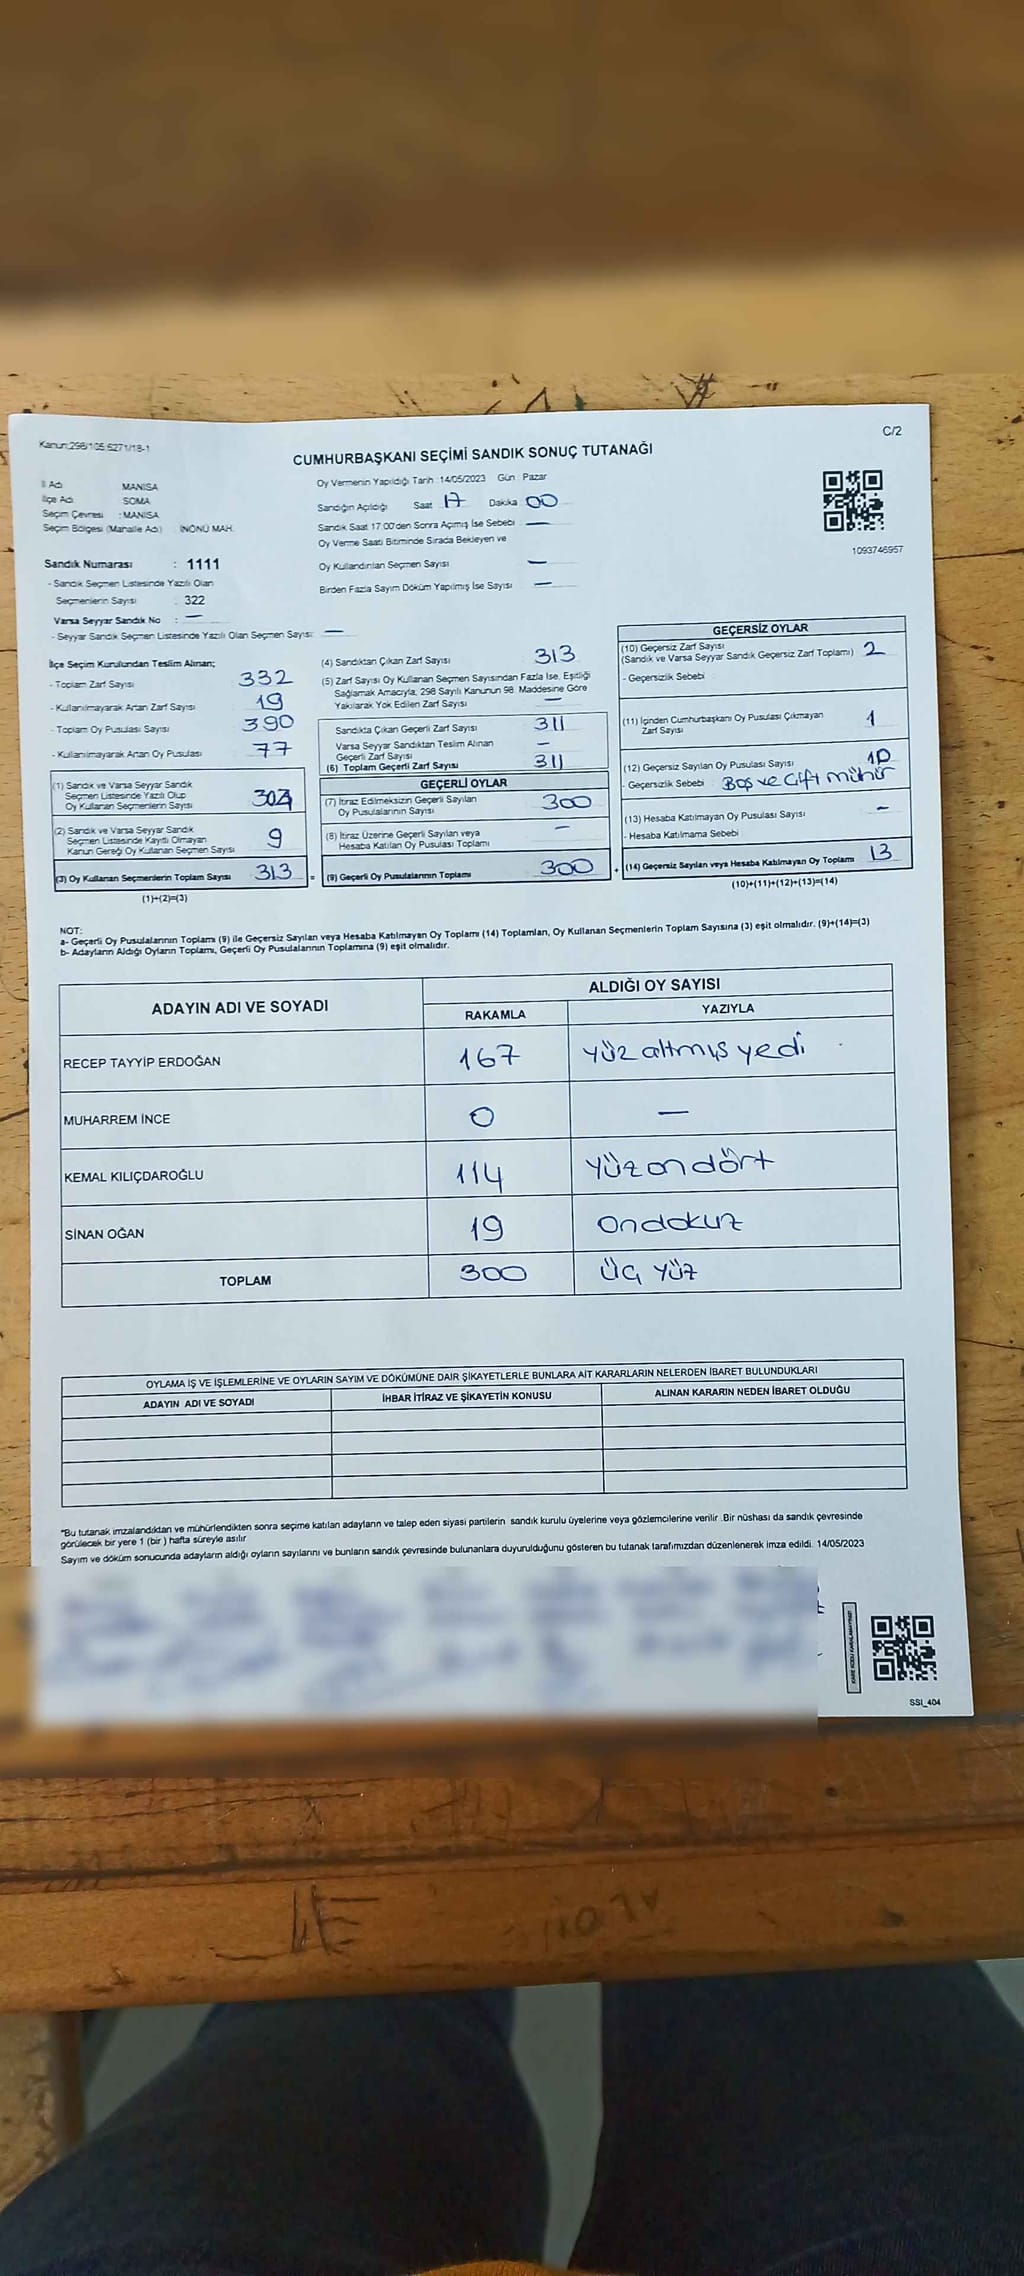 Kanun;298/105,6271/18-1
C/2
CUMHURBAŞKANI SEÇİMİ SANDIK SONUÇ TUTANAĞI
İl Adı MANİSA
İlçe Adı SOMA
Seçim Çevresi : MANİSA
Seçim Bölgesi (Mahalle Adı) İNÖNÜ MAH.
Sandık Numarası : 1111
- Sandık Seçmen Listesinde Yazılı Olan
Seçmenlerin Sayısı : 322
Varsa Seyyar Sandık No : —
- Seyyar Sandık Seçmen Listesinde Yazılı Olan Seçmen Sayısı: —
Oy Vermenin Yapıldığı Tarih :14/05/2023 Gün : Pazar
Sandığın Açıldığı Saat 17 Dakika 00
Sandık Saat 17:00'den Sonra Açımış İse Sebebi —
Oy Verme Saati Bitiminde Sırada Bekleyen ve
Oy Kullandırılan Seçmen Sayısı —
Birden Fazla Sayım Döküm Yapılmış İse Sayısı —
1093746957
İlçe Seçim Kurulundan Teslim Alınan;
- Toplam Zarf Sayısı 332
- Kullanılmayarak Artan Zarf Sayısı 19
- Toplam Oy Pusulası Sayısı 390
- Kullanılmayarak Artan Oy Pusulası 77
(1) Sandık ve Varsa Seyyar Sandık
Seçmen Listesinde Yazılı Olup
Oy Kullanan Seçmenlerin Sayısı 304
(2) Sandık ve Varsa Seyyar Sandık
Seçmen Listesinde Kayıtlı Olmayan
Kanun Gereği Oy Kullanan Seçmen Sayısı 9
(3) Oy Kullanan Seçmenlerin Toplam Sayısı 313 =
(1)+(2)=(3)
(4) Sandıktan Çıkan Zarf Sayısı : 313
(5) Zarf Sayısı Oy Kullanan Seçmen Sayısından Fazla İse, Eşitliği
Sağlamak Amacıyla, 298 Sayılı Kanunun 98. Maddesine Göre
Yakılarak Yok Edilen Zarf Sayısı —
Sandıkta Çıkan Geçerli Zarf Sayısı 311
Varsa Seyyar Sandıktan Teslim Alınan
Geçerli Zarf Sayısı —
(6) Toplam Geçerli Zarf Sayısı 311
GEÇERLİ OYLAR
(7) İtiraz Edilmeksizin Geçerli Sayılan
Oy Pusulalarının Sayısı 300
(8) İtiraz Üzerine Geçerli Sayılan veya
Hesaba Katılan Oy Pusulası Toplamı —
(9) Geçerli Oy Pusulalarının Toplamı 300 +
GEÇERSİZ OYLAR
(10) Geçersiz Zarf Sayısı
(Sandık ve Varsa Seyyar Sandık Geçersiz Zarf Toplamı) 2
- Geçersizlik Sebebi
(11) İçinden Cumhurbaşkanı Oy Pusulası Çıkmayan
Zarf Sayısı 1
(12) Geçersiz Sayılan Oy Pusulası Sayısı 10
- Geçersizlik Sebebi Boş ve Çift mühür
(13) Hesaba Katılmayan Oy Pusulası Sayısı —
- Hesaba Katılmama Sebebi
(14) Geçersiz Sayılan veya Hesaba Katılmayan Oy Toplamı 13
(10)+(11)+(12)+(13)=(14)
NOT:
a- Geçerli Oy Pusulalarının Toplamı (9) ile Geçersiz Sayılan veya Hesaba Katılmayan Oy Toplamı (14) Toplamları, Oy Kullanan Seçmenlerin Toplam Sayısına (3) eşit olmalıdır. (9)+(14)=(3)
b- Adayların Aldığı Oyların Toplamı, Geçerli Oy Pusulalarının Toplamına (9) eşit olmalıdır.
ADAYIN ADI VE SOYADI
ALDIĞI OY SAYISI
RAKAMLA YAZIYLA
RECEP TAYYİP ERDOĞAN 167 yüz altmış yedi
MUHARREM İNCE 0 —
KEMAL KILIÇDAROĞLU 114 yüz on dört
SİNAN OĞAN 19 on dokuz
TOPLAM 300 üç yüz
OYLAMA İŞ VE İŞLEMLERİNE VE OYLARIN SAYIM VE DÖKÜMÜNE DAİR ŞİKAYETLERLE BUNLARA AİT KARARLARIN NELERDEN İBARET BULUNDUKLARI
ADAYIN ADI VE SOYADI İHBAR İTİRAZ VE ŞİKAYETİN KONUSU ALINAN KARARIN NEDEN İBARET OLDUĞU
*Bu tutanak imzalandıktan ve mühürlendikten sonra seçime katılan adayların ve talep eden siyasi partilerin sandık kurulu üyelerine veya gözlemcilerine verilir .Bir nüshası da sandık çevresinde
görülecek bir yere 1 (bir ) hafta süreyle asılır
Sayım ve döküm sonucunda adayların aldığı oyların sayılarını ve bunların sandık çevresinde bulunanlara duyurulduğunu gösteren bu tutanak tarafımızdan düzenlenerek imza edildi. 14/05/2023
SSI_404